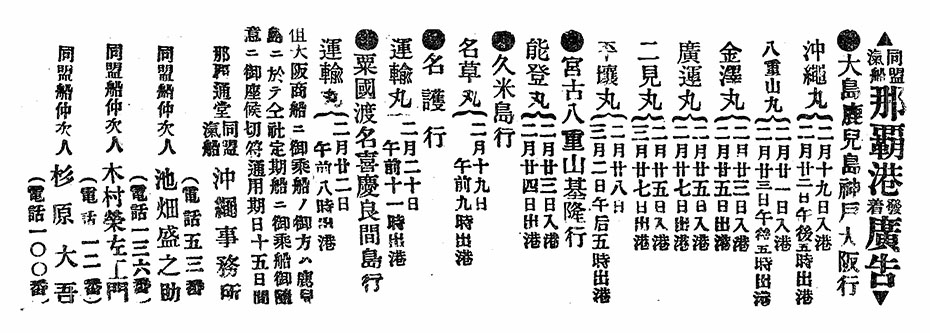 ▲同盟滊船那覇港發着廣告▼
●大島鹿兒島神戸大阪行
沖繩丸 二月十九日入港
二月廿二日午後五時出港
八重山丸 二月廿一日入港
二月廿三日午後五時出港
金澤丸 二月廿三日入港
二月廿五日出港
廣運丸 二月廿五日入港
二月廿七日出港
二見丸 二月廿五日入港
二月廿七日出港
平壤丸 二月廿八日
三月二日午后五時出港
●宮古八重山基隆行
能登丸 二月廿三日入港
二月廿四日出港
●久米島行
名草丸 二月十九日
午前九時出港
●名護行
運輸丸 二月二十日
午前十一時出港
●粟國渡名喜慶良間島行
運輸丸 二月廿二日
午前八時出港
但大阪商船ニ御乘船ノ御方ハ鹿兒
島ニ於テ仝社定期船ニ御乘船御隨
意ニ御座候切符通用期日十五日間
那覇通堂 同盟滊船 沖繩事務所
(電話五三番)
同盟船仲次人 池畑盛之助
(電話一三六番)
同盟船仲次人 木村榮左工門
(電話一二番)
同盟船仲次人 杉原大吾
(電話一〇〇番)